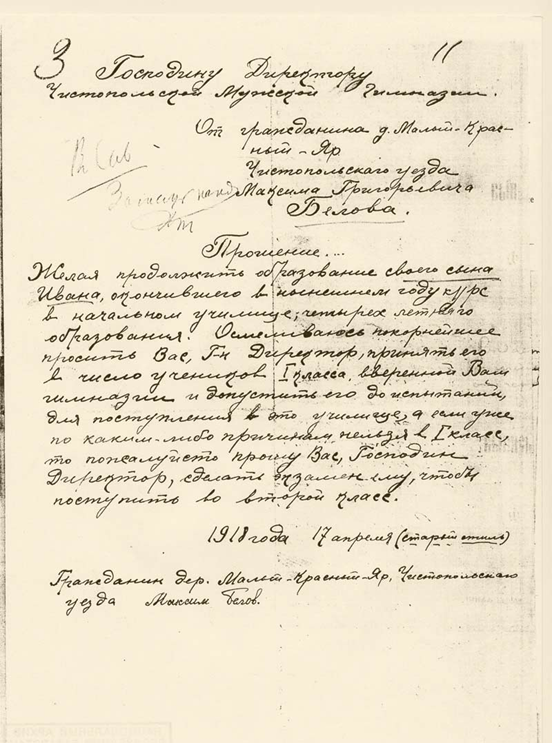 З 11
Господину Директору
Чистопольской Мужской Гимназии.
От гражданина д. Малый-Крас-
ный-Яр
Чистопольского уезда
Максима Григорьевича
Белова.
Прошение...
Желая продолжить образование своего сына
Ивана, окончившего в нынешнем году курс
в начальном училище, четырех летнего
образования. Осмеливаюсь покорнейшее
просить Вас, Гн Директор, принять его
в число учеников I класса, вверенной Вам
гимназии и допустить его до испытаний,
для поступления в это училище, а если уже
по каким-либо причинам, нельзя в I класс,
то пожалуйсто прошу Вас, Господин
Директор, сделать экзамен ему, чтобы
поступить во второй класс.
1918 года 17 апреля (старый стиль)
Гражданин дер. Малый-Красный-Яр, Чистопольскаго
уезда Максим Белов.